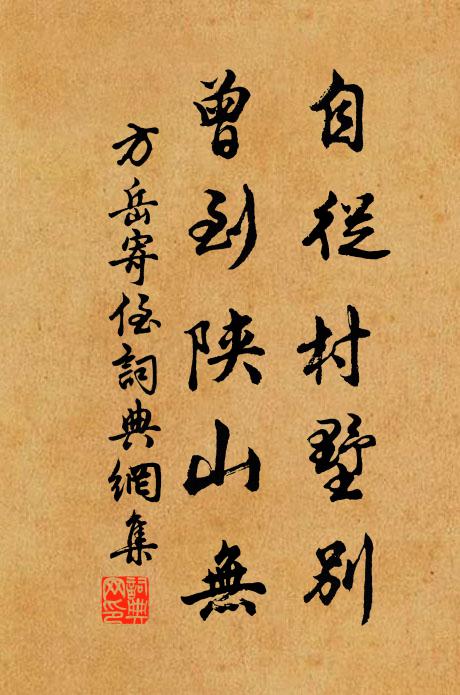 自從村墅別
曾到陝山無
方岳寄侄詞典網集
詞典網印